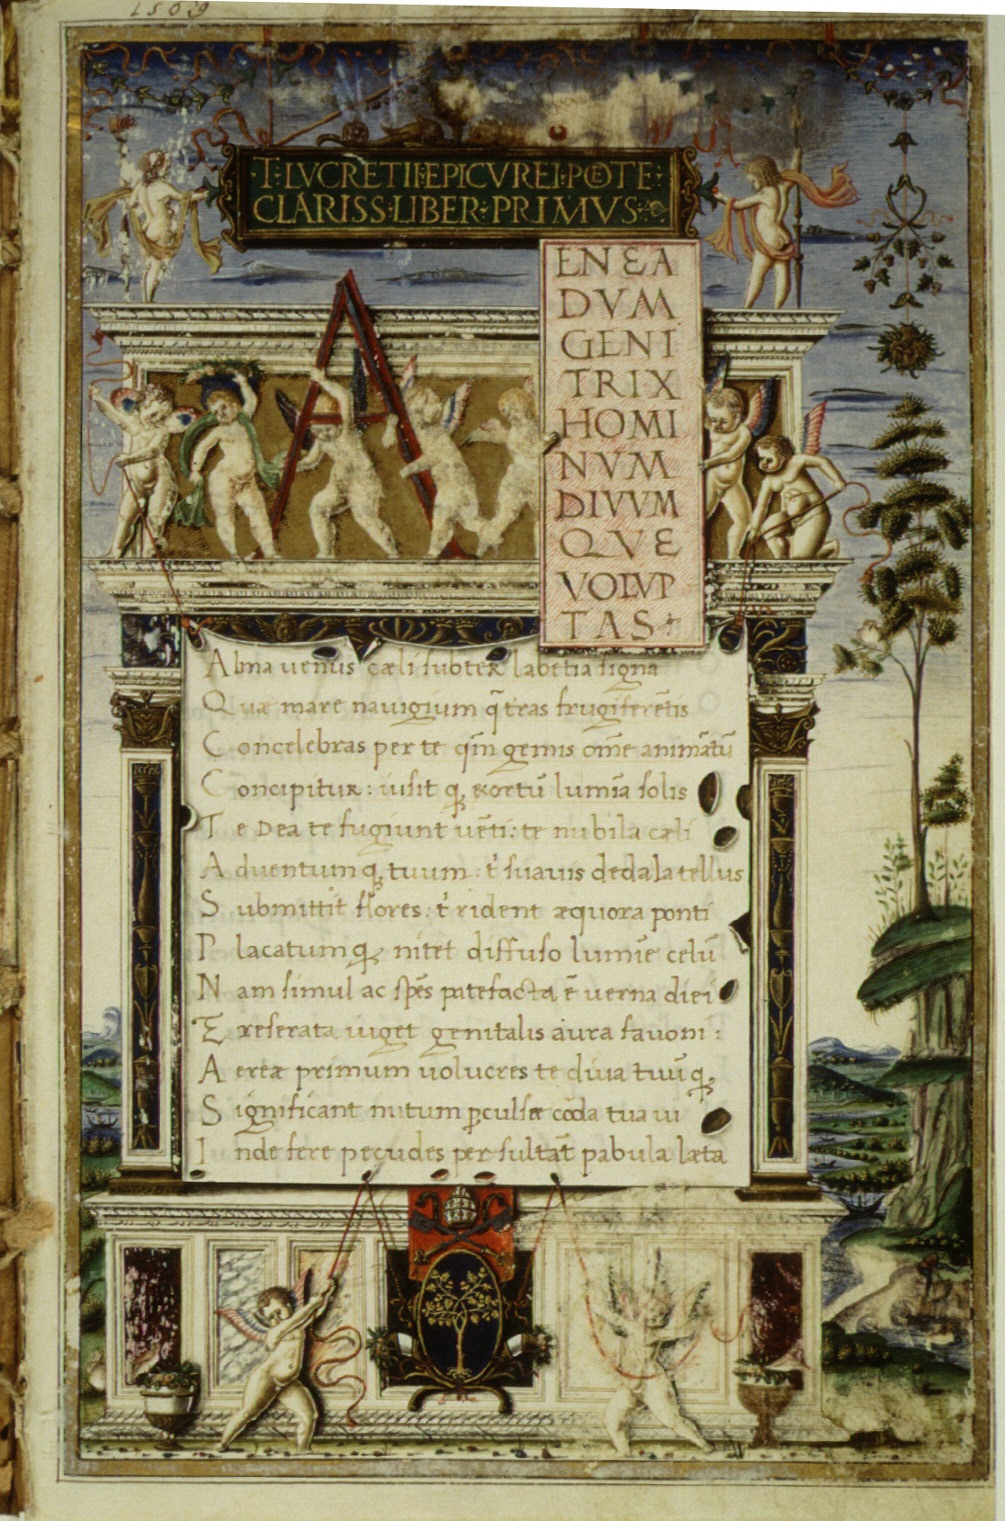 1569
·T·LVCRETII·EPICVREI·POETE·
CLARISS·LIBER·PRIMVS·
A
ENEA
DVM
GENI
TRIX
HOMI
NVM
DIVVM
QVE
VOLVP
TAS
Alma venus cæli subter labētia signa
Quæ mare nauigium q̄ tras frugiferētis
Concelebras per te qm̄ genus om̄e animātū
Concipitur: uisit qꝫ exortū lumīa solis
Te Dea te fugiunt uēti: te nubila cæli
Aduentumqꝫ tuum: t' suauis dedala tellus
Submittit flores: t' rident æquora ponti
Placatumqꝫ nitet diffuso lumīe celū
Nam simul ac spēs patefacta ē uerna diei
Et reserata uiget genitalis aura fauoni:
Aereæ primum uolucres te diua tuūqꝫ
Significant initum ꝑculsæ coda tua ui
Inde fere pecudes per sultāt pabula læta